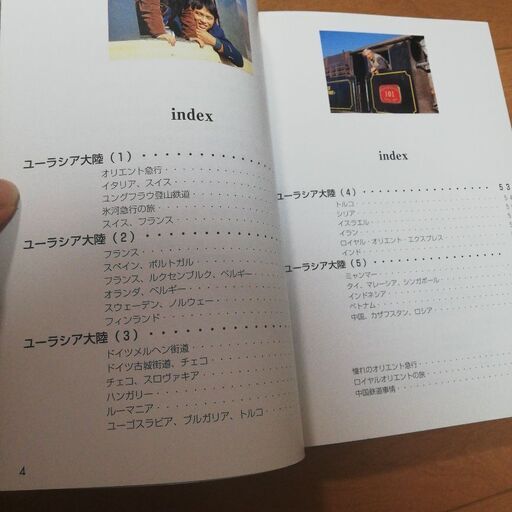 index
ユーラシア大陸（1）・・・・・・・・・・・・・・
オリエント急行・・・・・・・・・・・・・・
イタリア、スイス・・・・・・・・・・・・
ユングフラウ登山鉄道・・・・・・・・・・
氷河急行の旅・・・・・・・・・・・・・・
スイス、フランス・・・・・・・・・・・・
ユーラシア大陸（2）・・・・・・・・・・・・・・
フランス・・・・・・・・・・・・・・・・
スペイン、ポルトガル・・・・・・・・・・
フランス、ルクセンブルク、ベルギー・・・・
オランダ、ベルギー・・・・・・・・・・・
スウェーデン、ノルウェー・・・・・・・・
フィンランド・・・・・・・・・・・・・・
ユーラシア大陸（3）・・・・・・・・・・・・・・
ドイツメルヘン街道・・・・・・・・・・・
ドイツ古城街道、チェコ・・・・・・・・・
チェコ、スロヴァキア・・・・・・・・・・
ハンガリー・・・・・・・・・・・・・・・
ルーマニア・・・・・・・・・・・・・・・
ユーゴスラビア、ブルガリア、トルコ・・・・
4
101
index
ユーラシア大陸（4）・・・・・・・・・・・・・・53
トルコ・・・・・・・・・・・・・・・・54
シリア・・・・・・・・・・・・・・・・
イスラエル・・・・・・・・・・・・・・
イラン・・・・・・・・・・・・・・・・
ロイヤル・オリエント・エクスプレス・・・・
インド・・・・・・・・・・・・・・・・
ユーラシア大陸（5）・・・・・・・・・・・・・・
ミャンマー・・・・・・・・・・・・・・
タイ、マレーシア、シンガポール・・・・・・
インドネシア・・・・・・・・・・・・・
ベトナム・・・・・・・・・・・・・・・
中国、カザフスタン、ロシア・・・・・・・
憧れのオリエント急行・・・・・・・・・・
ロイヤルオリエントの旅・・・・・・・・・
中国鉄道事情・・・・・・・・・・・・・